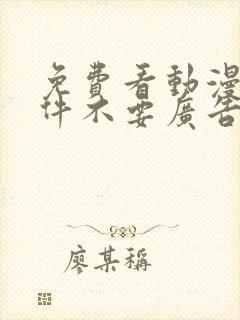 免費看動漫
件不要廣告
廖某稱